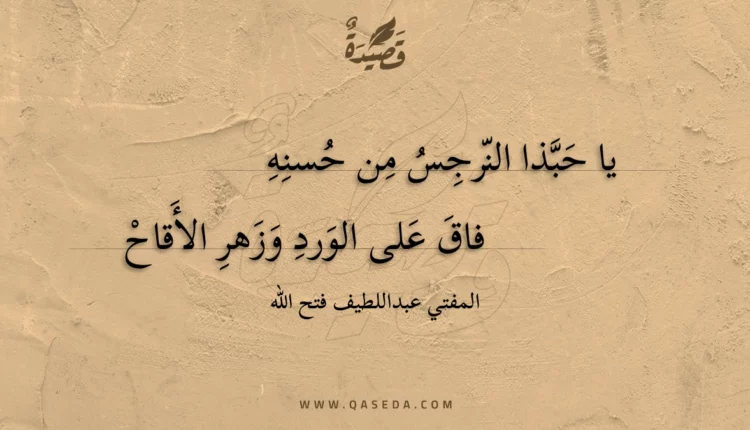 قَصِيدَةٌ
يا حَبَّذا النّرجِسُ مِن حُسنِهِ
فاقَ عَلى الوَردِ وَزَهرِ الأَقاحْ
المفتي عبداللطيف فتح الله
WWW.QASEDA.COM